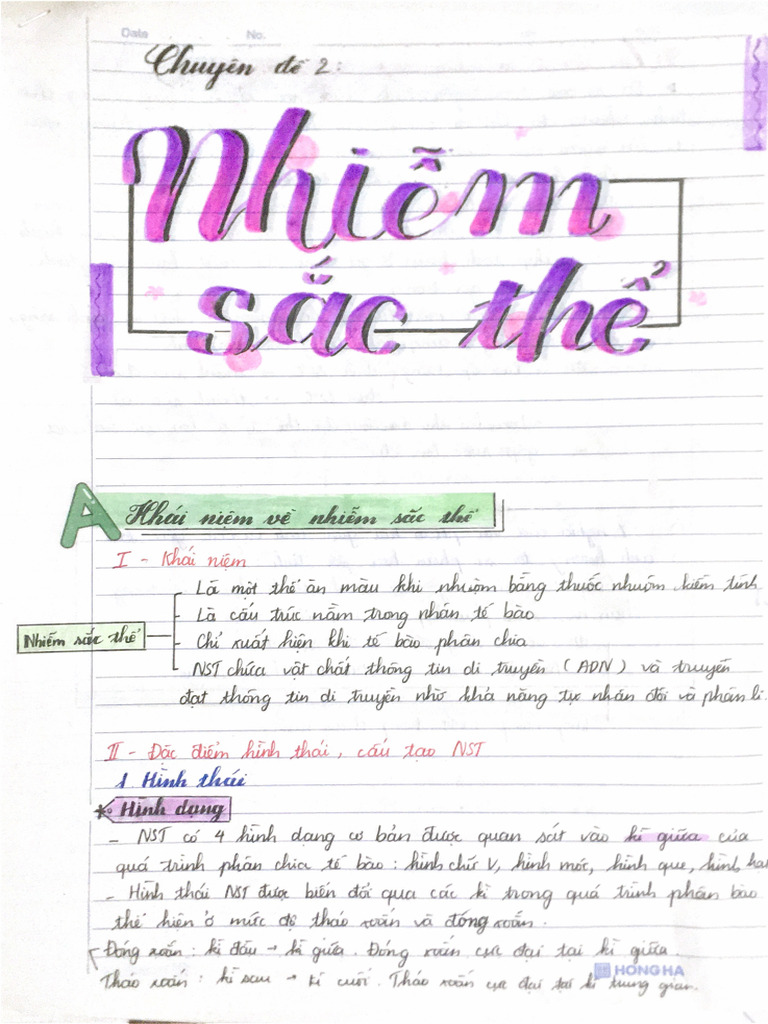 Date No.
Chuyên đề 2:
Nhiễm
sắc thể
A Khái niệm về nhiễm sắc thể
I - Khái niệm
Là một thể ăn màu khi nhuộm bằng thuốc nhuộm kiềm tính
- Là cấu trúc nằm trong nhân tế bào
Nhiễm sắc thể
- Chỉ xuất hiện khi tế bào phân chia
NST chứa vật chất thông tin di truyền (ADN) và truyền
đạt thông tin di truyền nhờ khả năng tự nhân đôi và phân li.
II - Đặc điểm hình thái, cấu tạo NST
1. Hình thái
* Hình dạng
- NST có 4 hình dạng cơ bản được quan sát vào kì giữa của
quá trình phân chia tế bào: hình chữ V, hình móc, hình que, hình hạt
- Hình thái NST được biến đổi qua các kì trong quá trình phân bào
thể hiện ở mức độ tháo xoắn và đóng xoắn.
Đóng xoắn: kì đầu → kì giữa. Đóng xoắn cực đại tại kì giữa.
HONG HA
Tháo xoắn: kì sau → kì cuối. Tháo xoắn cực đại tại kì trung gian.